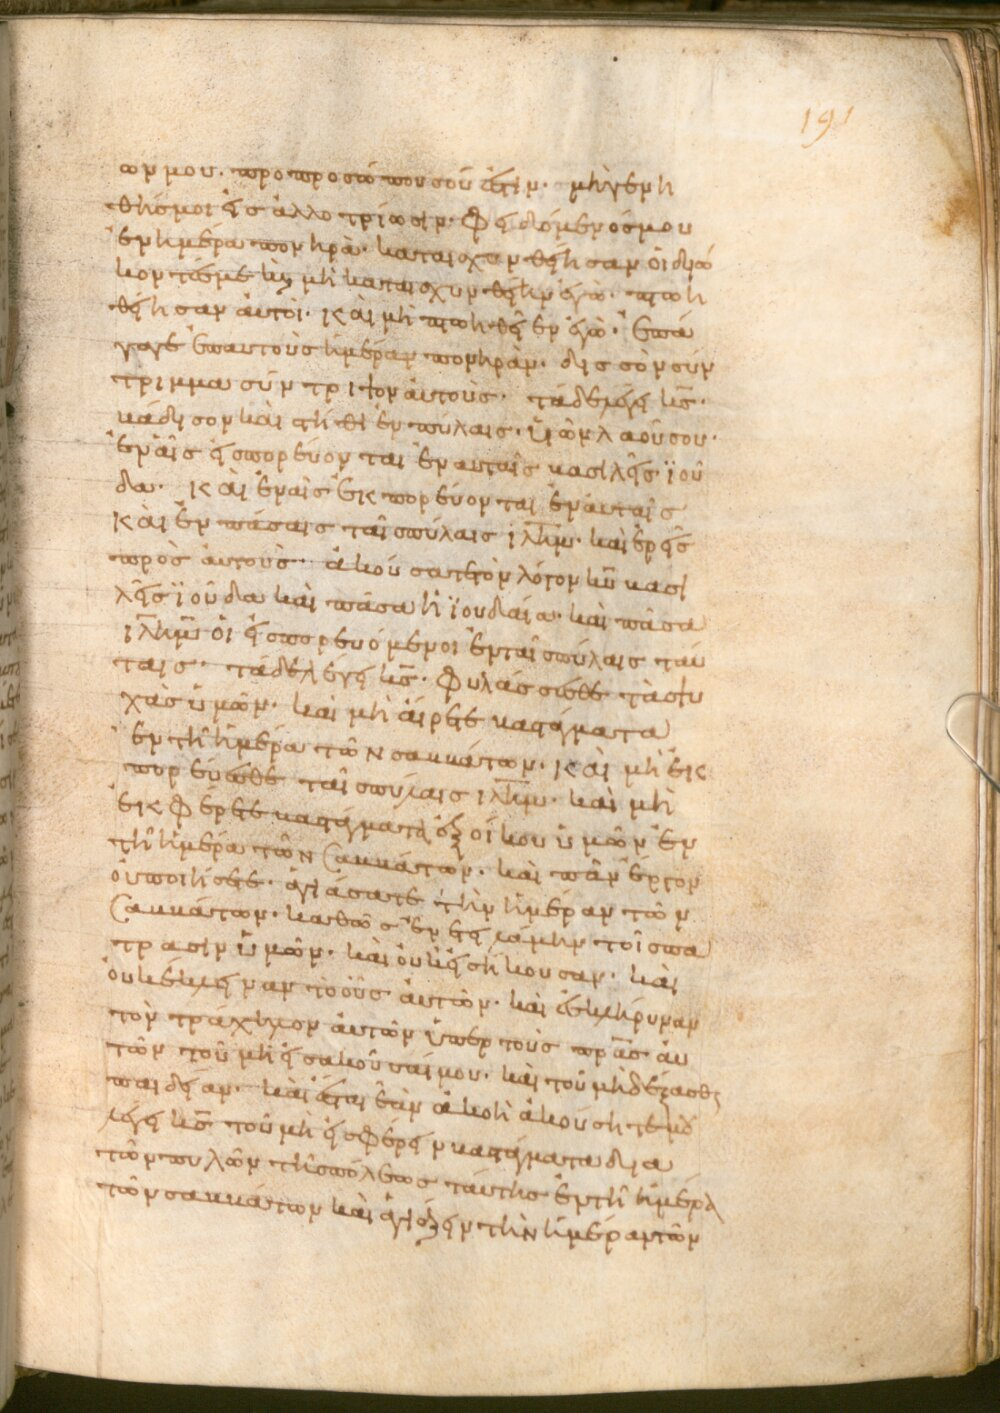 191
ων μου· προ προσώπου σού ἐστιν· μὴ γενη
θῆς μοι εἰς ἀλλοτρίωσιν· φειδόμενός μου
ἐν ἡμέρα πονηρᾶ· καταισχυνθείησαν οἱ διώ
κοντές με καὶ μὴ καταισχυνθείην ἐγώ· πτοη
θείησαν αὐτοί· καὶ μὴ πτοηθείην ἐγώ· ἐπά
γαγε ἐπαυτοὺς ἡμέραν πονηράν· δισσὸν σύν
τριμμα σύντριψον αὐτούς· τάδε λέγει κς·
βάδισον καὶ στῆθι ἐν πύλαις· υἱῶν λαοῦ σου·
ἐν αἷς εἰσπορεύονται ἐν αυταῖς βασιλεῖς ϊού
δα· καὶ ἐν αἷς ἐκπορεύονται ἐν αὐταῖς
καὶ ἐν πάσαις ταῖς πύλαις ιλημ· καὶ ἐρεῖς
πρὸς αὐτούς· ἀκούσατε τὸν λόγον κυ βασι
λεῖς ϊούδα καὶ πᾶσα ἡ ϊουδαία· καὶ πᾶσα
ιλημ οἱ εἰσπορευόμενοι ἐν ταῖς πύλαις ταύ
ταις· τάδε λέγει κς· φυλάσσεσθε τὰς ψυ
χὰς ὑμῶν· καὶ μὴ αἴρετε βαστάγματα
ἐν τῆ ἡμέρα τῶν σαββάτων· καὶ μὴ ἐκ
πορεύεσθε ταῖς πύλαις ιλημ· καὶ μὴ
ἐκφέρετε βαστάγματα ἐξ οἴκου ὑμῶν ἐν
τῆ ἡμέρα τῶν σαββάτων· καὶ πᾶν ἔργον
οὐ ποιήσετε· ἁγιάσατε τὴν ἡμέραν τῶν
σαββάτων· καθὼς ἐνετειλάμην τοῖς πα
τράσιν ὑμῶν· καὶ οὐκ εἰσήκουσαν· καὶ
οὐκ ἔκλειναν τὸ οὖς αὐτῶν· καὶ ἐσκλήρυναν
τὸν τράχηλον αὐτῶν ὑπὲρ τοὺς πρας αὐ
τῶν τοῦ μὴ εἰσακοῦσαί μου· καὶ τοῦ μὴ δέξασθαι
παιδείαν· καὶ ἔσται ἐὰν ἀκοὴ ἀκούσητέ μου
λέγει κς τοῦ μὴ εἰσφέρειν βαστάγματα δια
τῶν πυλῶν τῆς πόλεως ταύτης ἐν τῆ ἡμέρα
τῶν σαββάτων καὶ ἁγιάζειν τὴν ἡμέραν τῶν